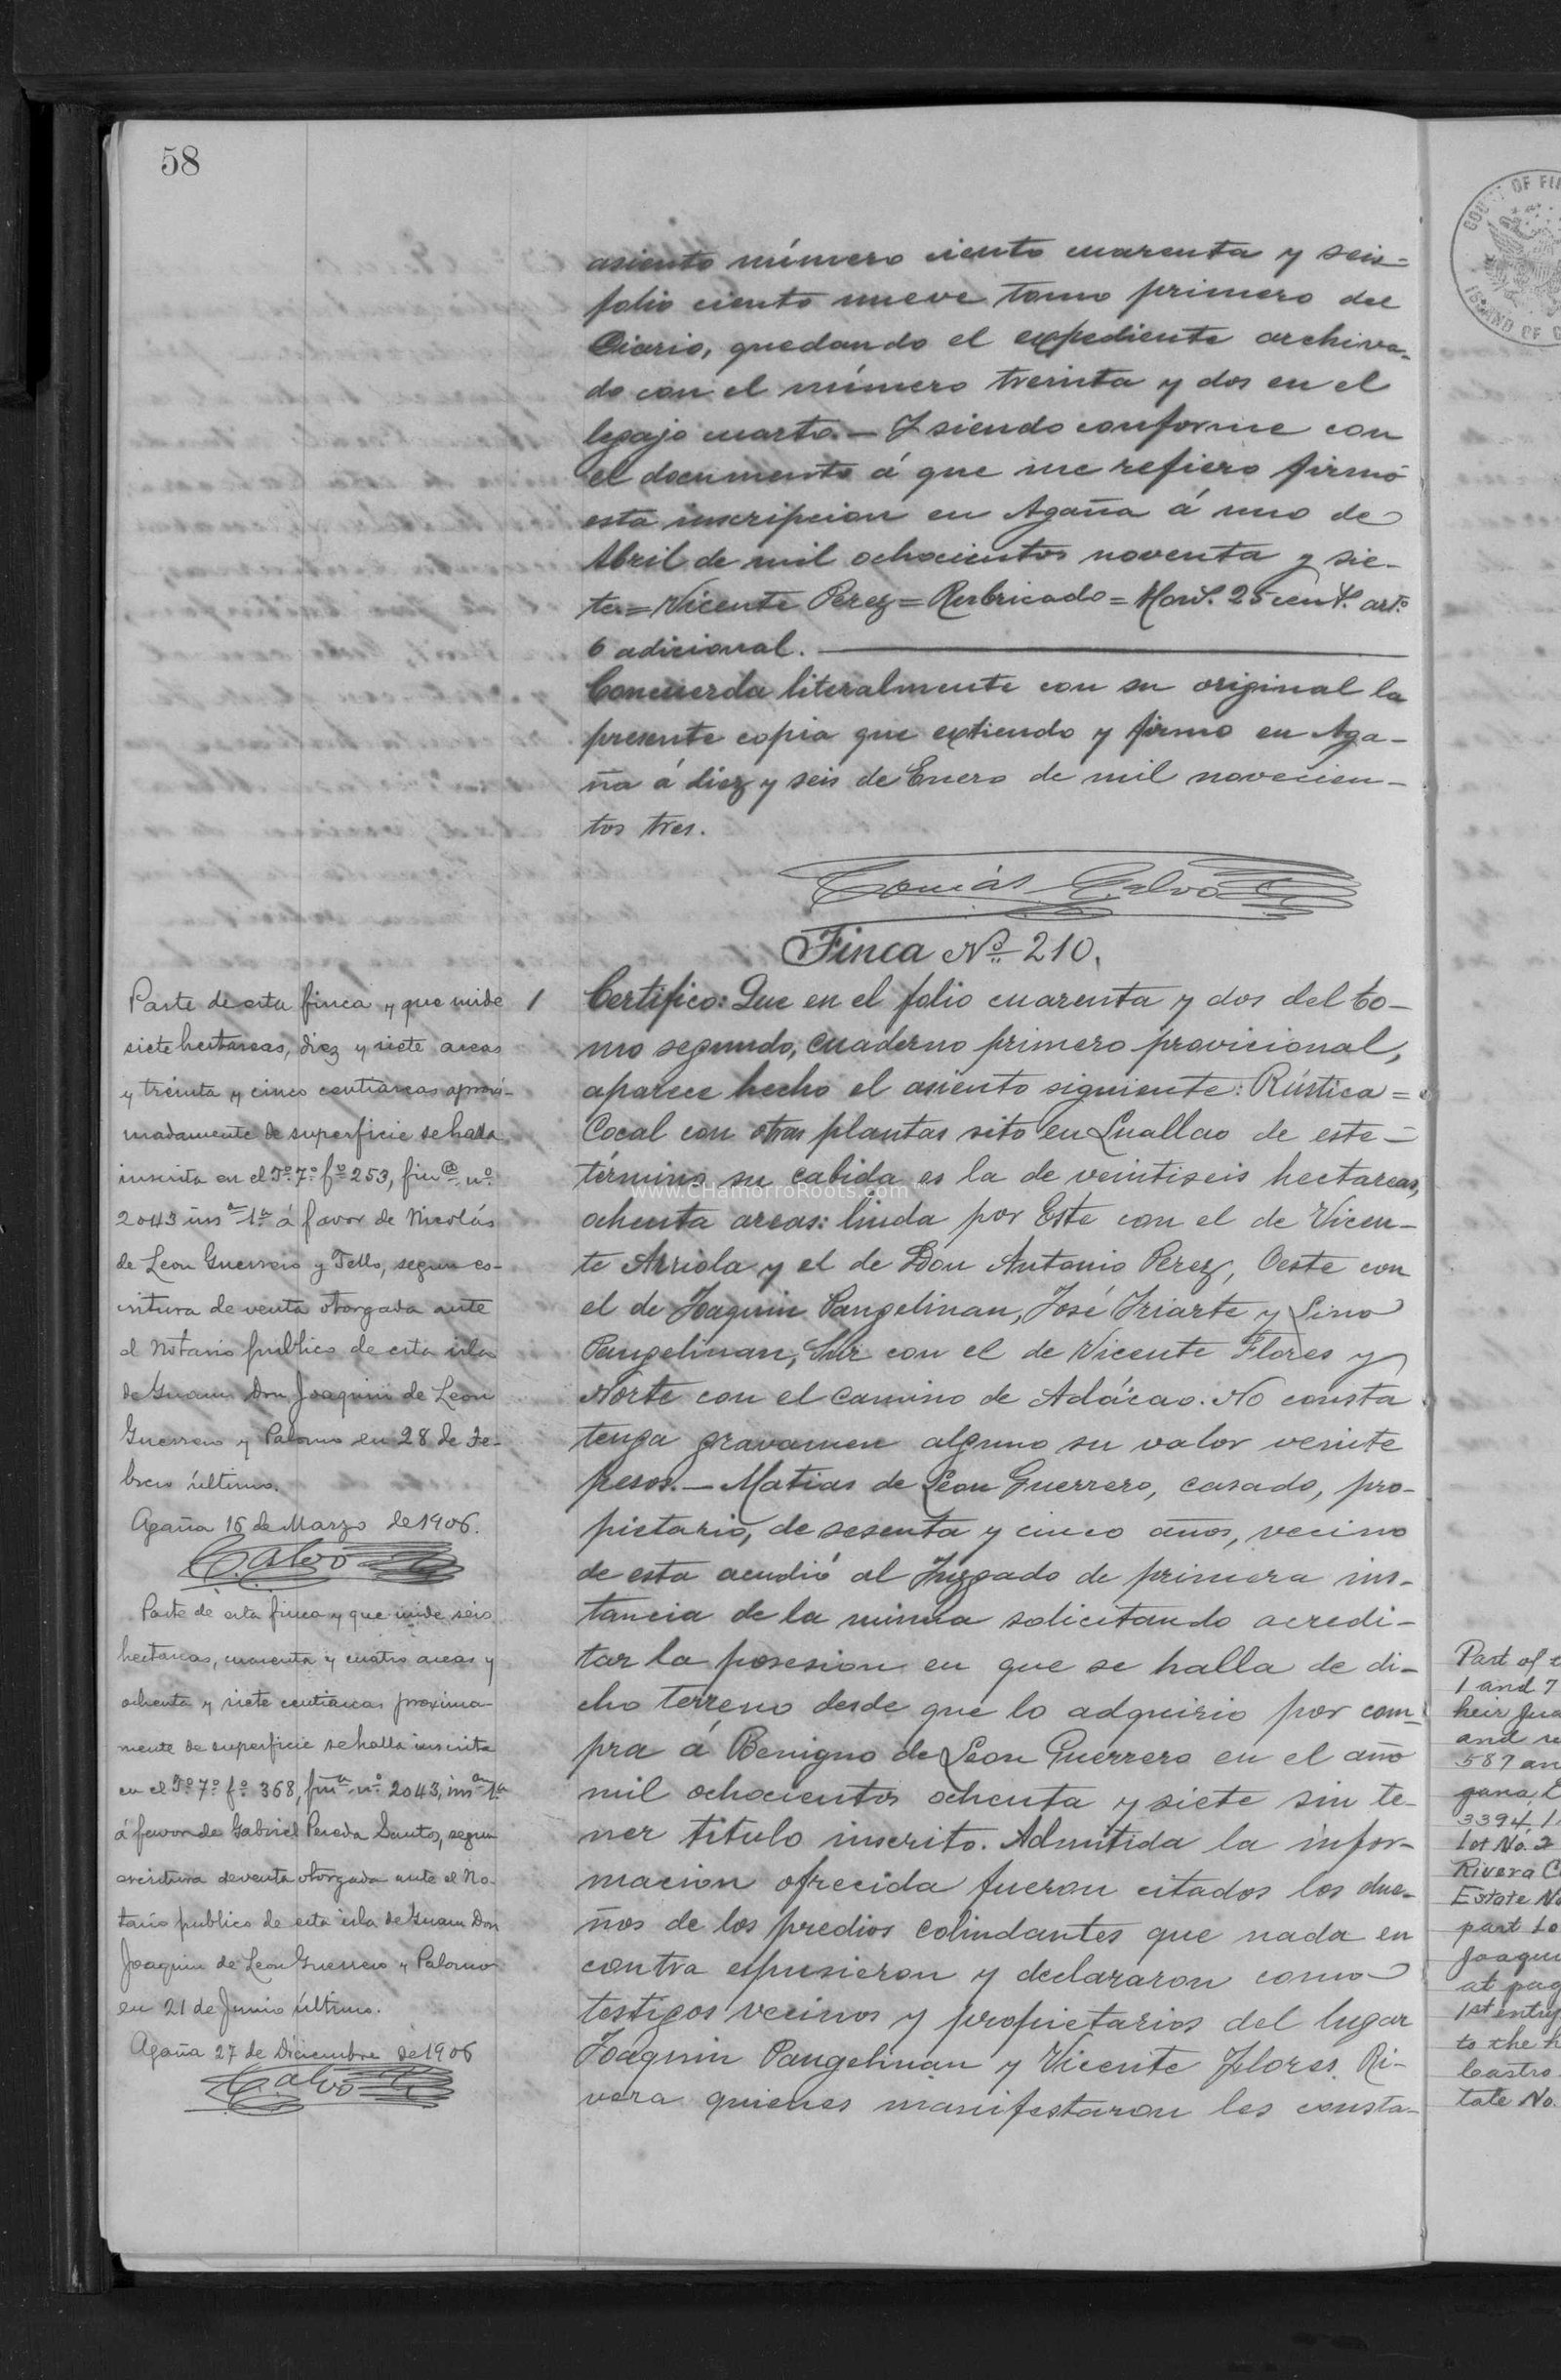 58
asiento número ciento cuarenta y seis=
folio ciento nueve tomo primero del
Diario, quedando el expediente archiva-
do con el número treinta y dos en el
legajo cuarto.— Y siendo conforme con
el documento á que me refiero firmo
esta inscripcion en Agaña á uno de
Abril de mil ochocientos noventa y sie-
te.=Vicente Perez=Rubricado=Hons. 25 cent. art.o
6 adicional.
Concuerda literalmente con su original la
presente copia que extiendo y firmo en Aga-
ña á diez y seis de Enero de mil novecien-
tos tres.
Tomás Calvo
Finca No. 210.
Parte de esta finca y que mide
siete hectareas, diez y siete areas
y treinta y cinco centiareas aproxi-
madamente de superficie se halla
inscrita en el To. 7o. fo. 253, finca no.
2043 insa. 1a. á favor de Nicolás
de Leon Guerrero y Tello, segun es-
critura de venta otorgada ante
el Notario publico de esta isla
de Guam Don Joaquin de Leon
Guerrero y Palomo en 28 de Fe-
brero último.
Agaña 16 de Marzo de 1906.
T. Calvo
Parte de esta finca y que mide seis
hectareas, cuarenta y cuatro areas y
ochenta y siete centiareas proxima-
mente de superficie se halla inscrita
en el To. 7o. fo. 368, fina. no. 2043, insa. 1a.
á favor de Gabriel Pereda Santos, segun
escritura de venta otorgada ante el No-
tario publico de esta isla de Guam Don
Joaquin de Leon Guerrero y Palomo
en 21 de Junio último.
Agaña 27 de Diciembre de 1906
T. Calvo
1
Certifico: Que en el folio cuarenta y dos del to-
mo segundo, cuaderno primero provicional,
aparece hecho el asiento siguiente: Rústica=
Cocal con otras plantas sito en Lualao de este
término su cabida es la de veintiseis hectareas,
ochenta areas: linda por Este con el de Vicen-
te Arriola y el de Don Antonio Perez, Oeste con
el de Joaquin Pangelinan, José Iriarte y Lino
Pangelinan, Sur con el de Vicente Flores y
Norte con el camino de Adácao. No consta
tenga gravamen alguno su valor veinte
pesos.— Matias de Leon Guerrero, casado, pro-
pietario, de sesenta y cinco años, vecino
de esta acudió al Juzgado de primera ins-
tancia de la misma solicitando acredi-
tar la posesion en que se halla de di-
cho terreno desde que lo adquirio por com-
pra á Benigno de Leon Guerrero en el año
mil ochocientos ochenta y siete sin te-
ner titulo inscrito. Admitida la infor-
macion ofrecida fueron citados los due-
ños de los predios colindantes que nada en
contra espusieron y declararon como
testigos vecinos y propietarios del lugar
Joaquin Pangelinan y Vicente Flores Ri-
vera quienes manifestaron les consta-
www.CHamorroRoots.com
COURT OF FI
ISLAND OF G
Part of
1 and 7
heir Jua
and re
587 an
gana,
3394,1
Lot No. 2
Rivera C
Estate No
part Lo
Joaquin
at pag
1st entry
to the h
Castro
tate No.